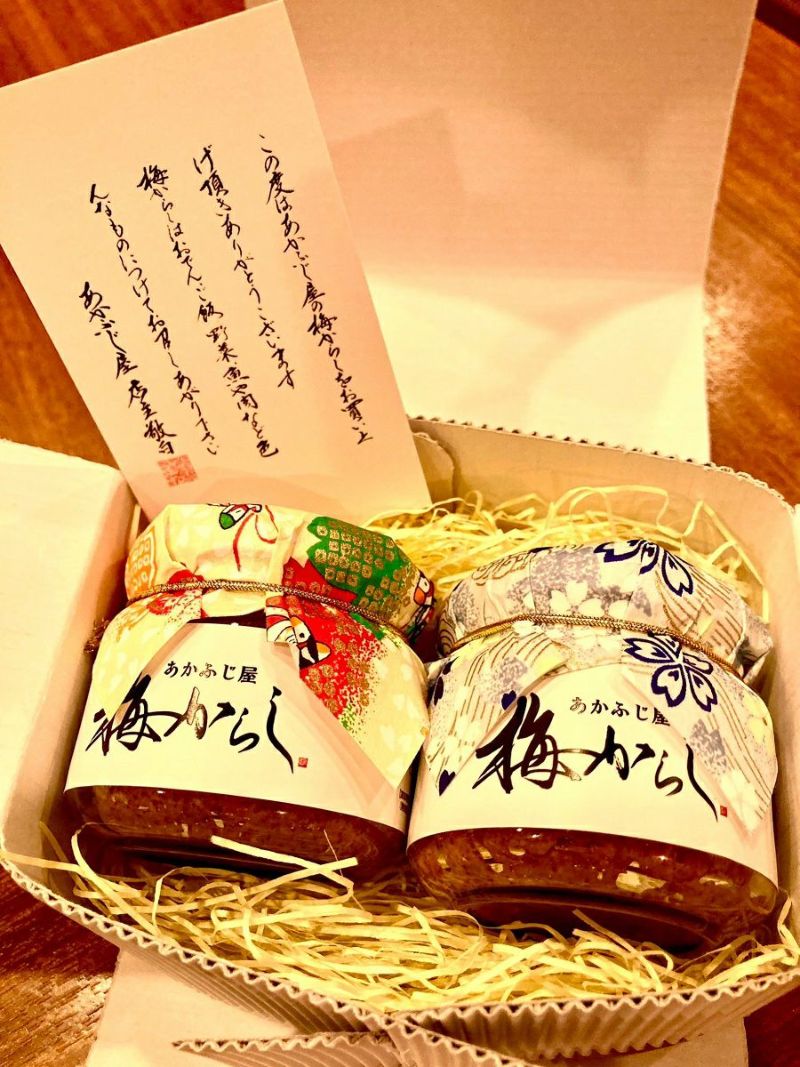 この度はあかふじ屋の梅からしをお買い上
げ頂きありがとうございます
梅からしはおでんご飯野菜魚や肉など色
んなものにつけてお召しあがり下さい
あかふじ屋 店主敬白
あかふじ屋
梅からし
あかふじ屋
梅からし